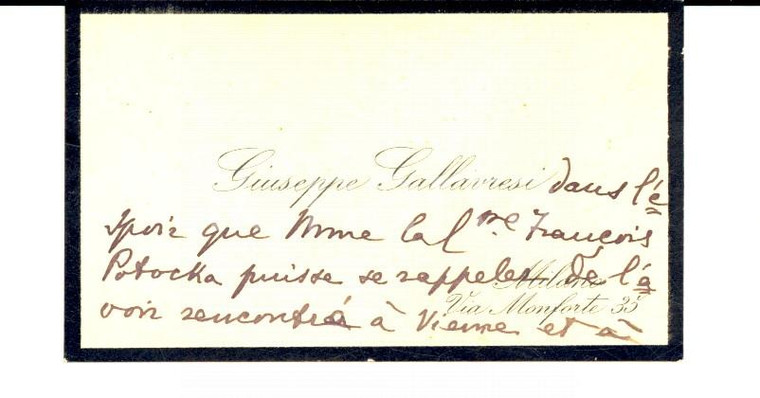 Giuseppe Gallavresi dans l'é
spoir que Mme la C.sse François
Potocka puisse se rappeler de l'a
Milano
Via Monforte 35
voir rencontré à Vienne et à